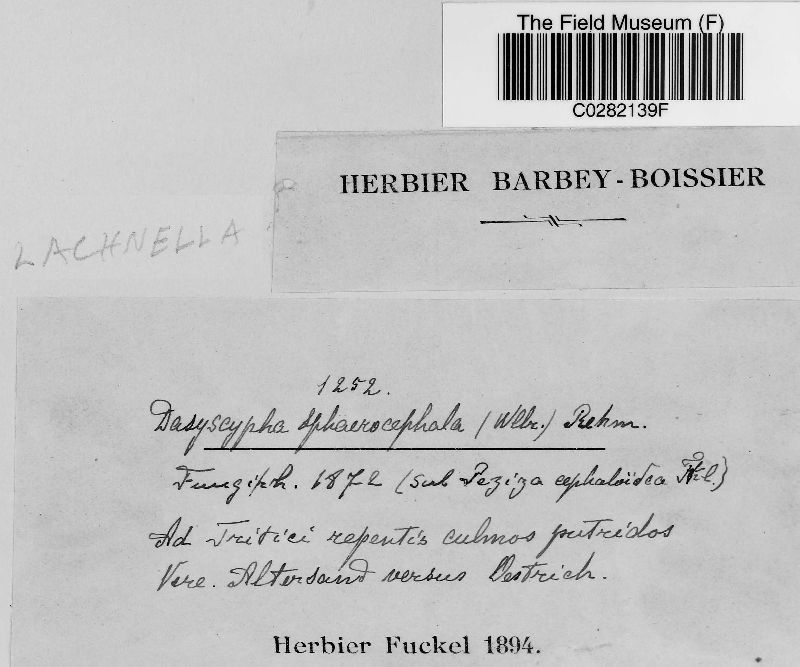 The Field Museum (F)
C0282139F
HERBIER BARBEY-BOISSIER
LACHNELLA
1252.
Dasyscypha sphaerocephala (Wllr.) Rehm.
Fungi rh. 1872 (sub Peziza cephaloidea Fkl.)
Ad Tritici repentis culmos putridos
Vere. Altersand versus Oestrich.
Herbier Fuckel 1894.